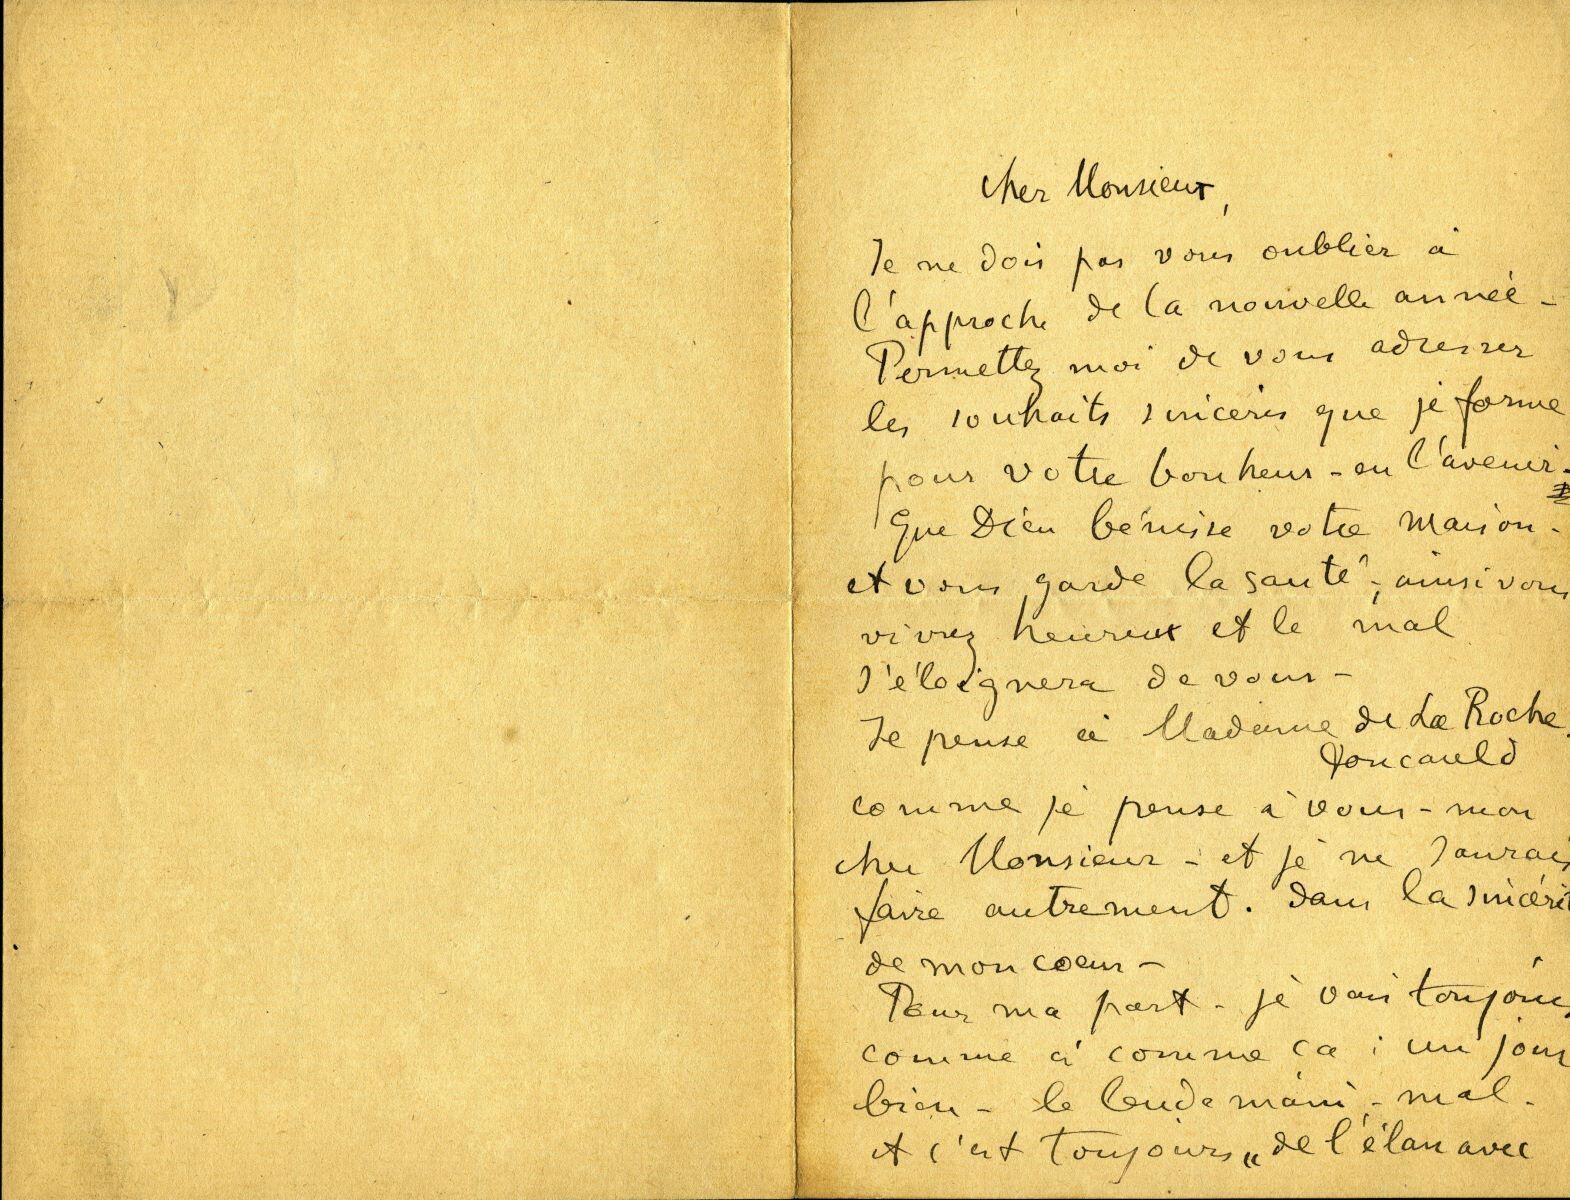 cher Monsieur,
Je ne dois pas vous oublier à
l'approche de la nouvelle année -
Permettez moi de vous adresser
les souhaits sincères que je forme
pour votre bonheur - en l'avenir -
Que Dieu bénisse votre maison -
et vous garde la santé -, ainsi vous
vivrez heureux et le mal
s'éloignera de vous -
Je pense à Madame de La Roche
foucauld
comme je pense à vous - mon
cher Monsieur - et je ne saurais
faire autrement. dans la sincérit
de mon coeur -
Pour ma part - je vais toujours
comme ci comme ca : un jour
bien - le lendemain - mal -
et c'est toujours „ de l'élan avec